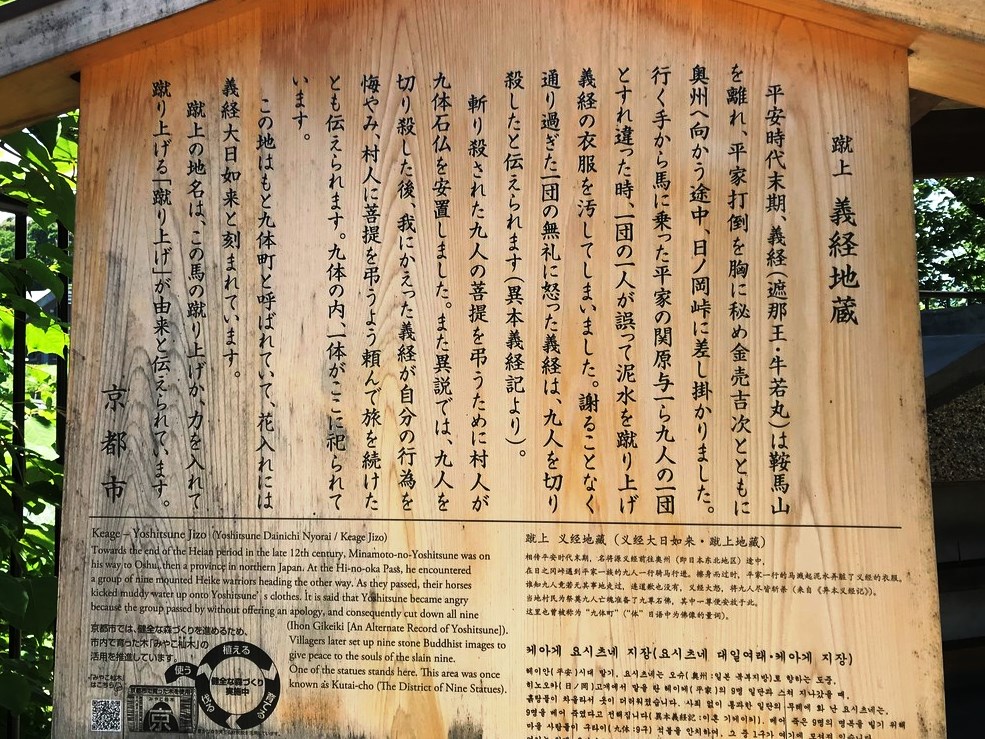 蹴上 義経地蔵
平安時代末期、義経(遮那王・牛若丸)は鞍馬山
を離れ、平家打倒を胸に秘め金売吉次とともに
奥州へ向かう途中、日ノ岡峠に差し掛かりました。
行く手から馬に乗った平家の関原与一ら九人の一団
とすれ違った時、一団の一人が誤って泥水を蹴り上げ
義経の衣服を汚してしまいました。謝ることなく
通り過ぎた一団の無礼に怒った義経は、九人を切り
殺したと伝えられます(異本義経記より)。
斬り殺された九人の菩提を弔うために村人が
九体石仏を安置しました。また異説では、九人を
切り殺した後、我にかえった義経が自分の行為を
悔やみ、村人に菩提を弔うよう頼んで旅を続けた
とも伝えられます。九体の内、一体がここに祀られて
います。
この地はもと九体町と呼ばれていて、花入れには
義経大日如来と刻まれています。
蹴上の地名は、この馬の蹴り上げか、力を入れて
蹴り上げる「蹴り上げ」が由来と伝えられています。
京都市
Keage – Yoshitsune Jizo (Yoshitsune Dainichi Nyorai / Keage Jizo)
Towards the end of the Heian period in the late 12th century, Minamoto-no-Yoshitsune was on
his way to Oshu, then a province in northern Japan. At the Hi-no-oka Pass, he encountered
a group of nine mounted Heike warriors heading the other way. As they passed, their horses
kicked muddy water up onto Yoshitsune's clothes. It is said that Yoshitsune became angry
because the group passed by without offering an apology, and consequently cut down all nine
(Ihon Gikeiki [An Alternate Record of Yoshitsune]).
Villagers later set up nine stone Buddhist images to
give peace to the souls of the slain nine.
One of the statues stands here. This area was once
known as Kutai-cho (The District of Nine Statues).
京都市では、健全な森づくりを進めるため、
市内で育った木「みやこ杣木」の
活用を推進しています。
植える
使う
健全な森づくり
実施中
蹴上 义经地藏(义经大日如来・蹴上地藏)
相传平安时代末期,名将源义经前往奥州(即日本东北地区)途中,
在日之冈峠遇到平家一族的九人一行骑马行进。擦身而过时,平家一行的马溅起泥水弄脏了义经的衣服,
谁知九人竟若无其事地走过,连道歉也没有,义经大怒,将九人尽皆斩杀(来自《异本义经记》)。
当地村民为祭奠九人亡魂准备了九尊石佛,其中一尊便安放于此。
这里也曾被称为"九体町"("体"日语中为佛像的量词)。
케아게 요시츠네 지장(요시츠네 대일여래・케아게 지장)
헤이안(平安)시대 말기, 요시츠네는 오슈(奥州:일본 북부지방)로 향하는 도중,